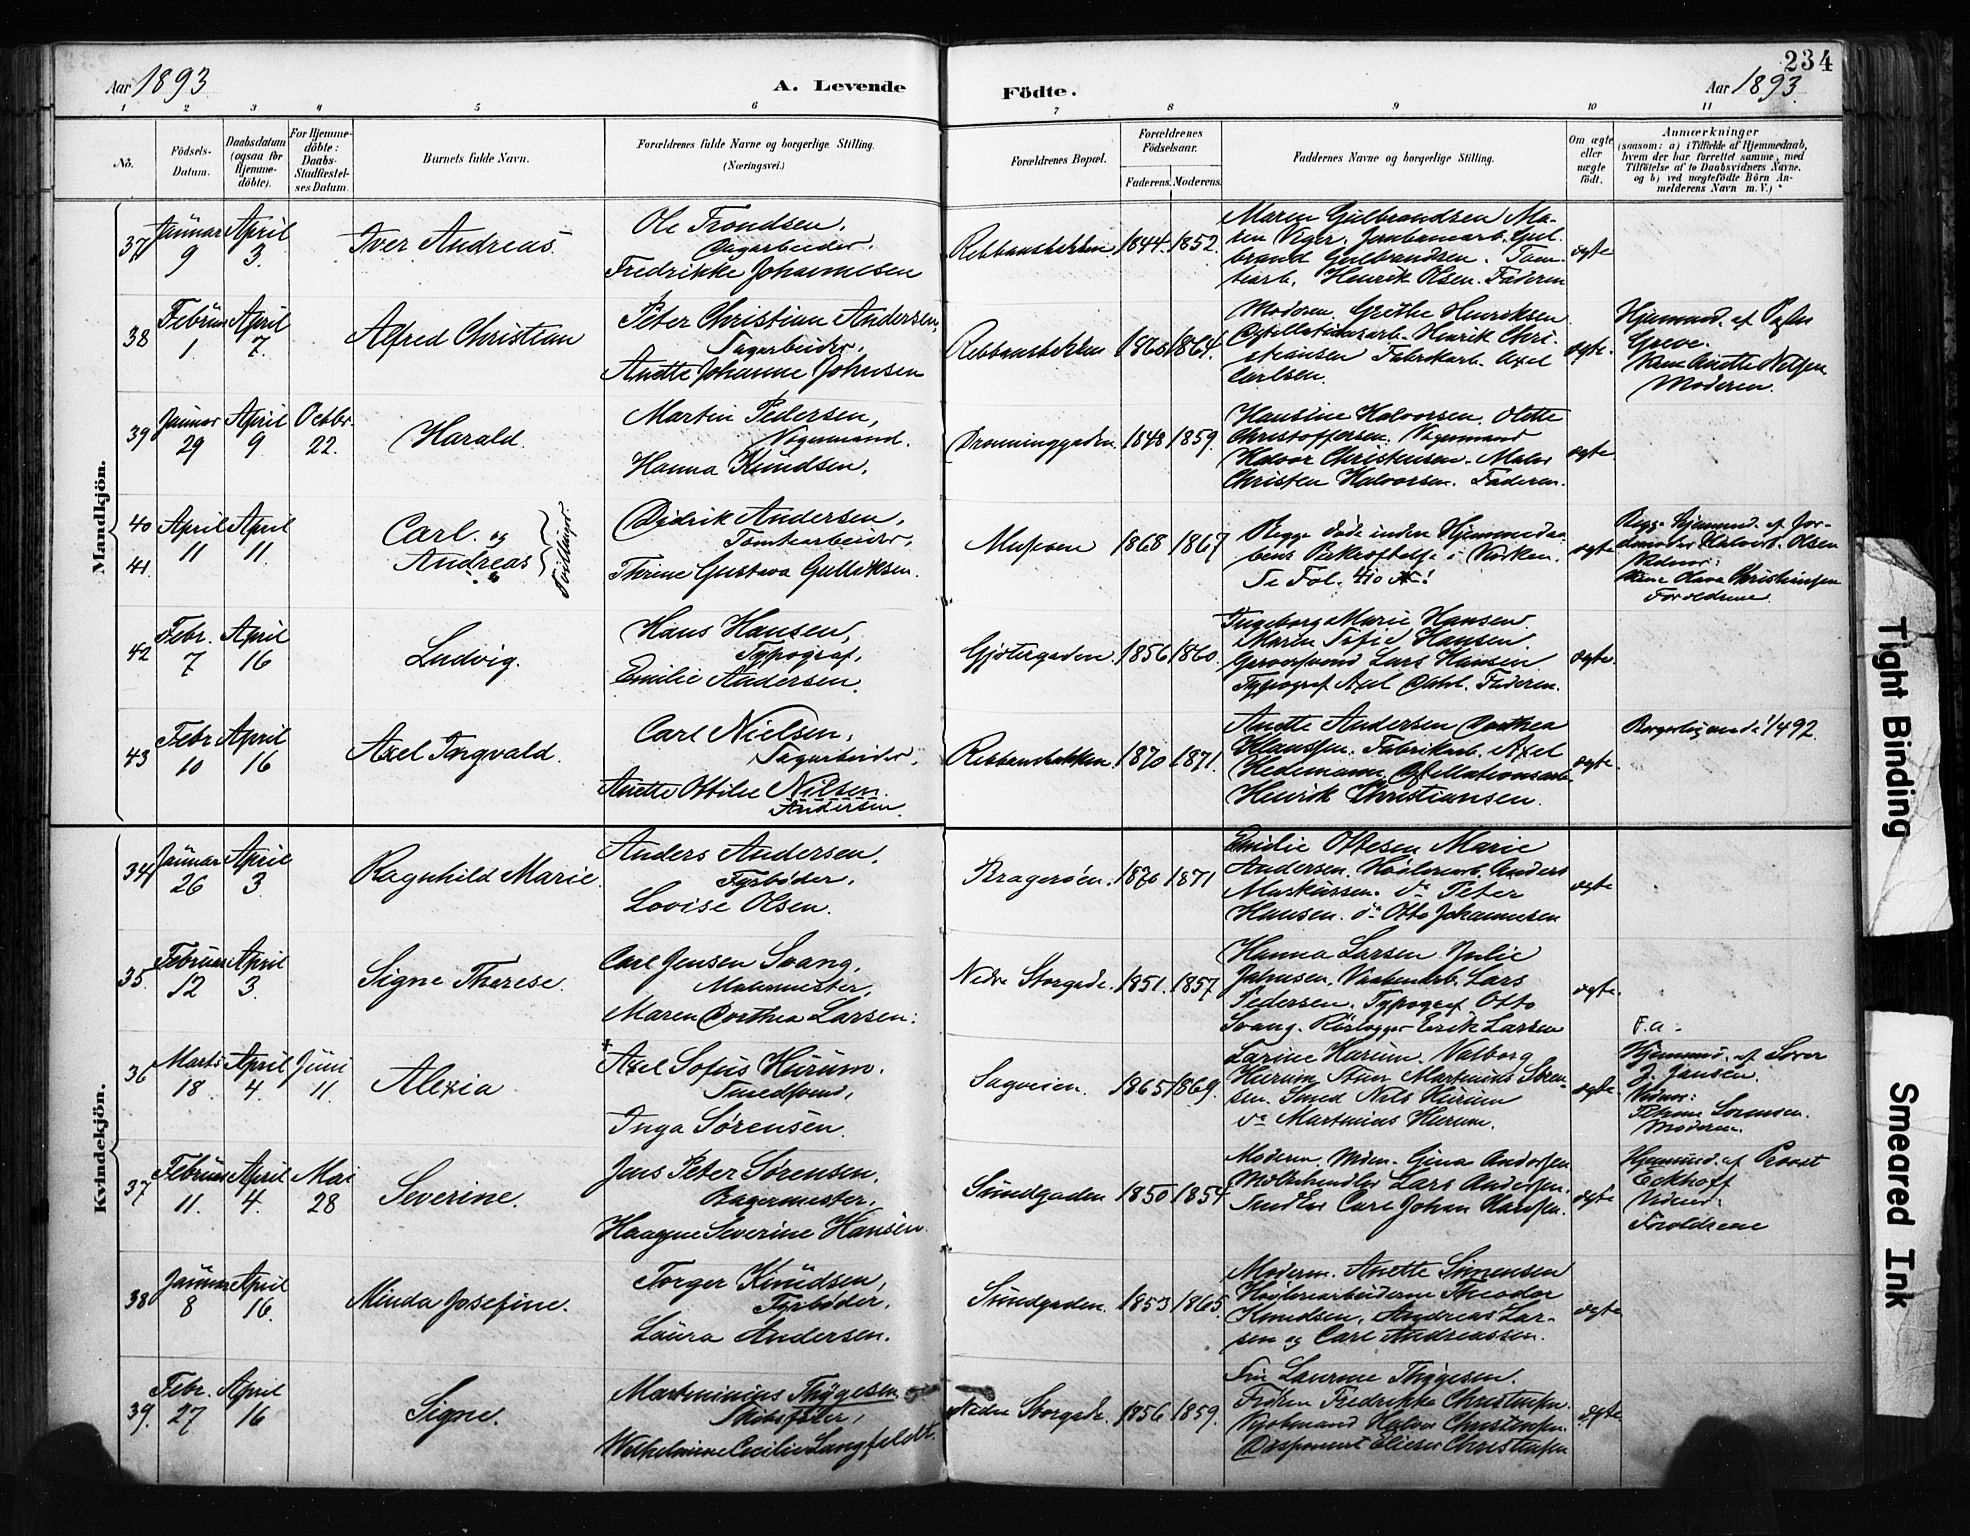 234
Aar 1893
A. Levende
Födte.
Aar 1893.
1 2 3 4 5 6 7 8 9 10 11
No.
Födsels-
Datum.
Daabsdatum
(ogsaa for
Hjemme-
döbte).
For Hjemme-
döbte:
Daabs-
Stadfæstel-
ses Datum.
Barnets fulde Navn.
Forældrenes fulde Navne og borgerlige Stilling.
(Næringsvei.)
Forældrenes Bopæl.
Forældrenes
Födselsaar.
Faderens. Moderens.
Faddernes Navne og borgerlige Stilling.
Om ægte
eller
uægte
født.
Anmærkninger
(saasom: a) i Tilfælde af Hjemmedaab,
hvem der har forrettet samme, med
Tilföielse af to Daabsvidners Navne.
og b) ved uægtefödte Börn An-
melderens Navn m. V.)
Mandkjön.
37 Januar 9 April 3. Iver Andreas.
Ole Trondsen,
Dagarbeider.
Fredrikke Johannesen
Rebbansbakken 1844 1852.
Maren Gulbrandsen Ma-
ren Viger. Jernbanearb. Gul-
brand Gulbrandsen. Tom-
tearb. Henrik Olsen. Faderen
ægte
38 Februar 1 April 7. Alfred Christian
Peter Christian Andersen,
Sagarbeider,
Anette Johanne Johnsen
Rebbansbakken 1868 1864.
Moderen. Grethe Henriksen
Destellationsarb. Henrik Chri-
stiansen Fabrikarb. Axel
Carlsen.
ægte.
Hjemmed. af Pastor
Greve.
Vidne Anette Nilsen
Moderen.
39 Januar 29 April 9 Octbr. 22. Harald.
Martin Pedersen,
Vognmand.
Hanna Knudsen.
Dronninggaden. 1848 1859.
Hansine Halvorsen. Olette
Christoffersen. Vognmand
Halvor Christensen. Maler
Christen Halvorsen. Faderen.
ægte.
40 41. April 11 April 11. Carl og
Andreas
Tvillinger
Didrik Andersen,
Tomtearbeider,
Thrine Gustava Gulliksen.
Musøen 1868 1867
Begge døde inden Hjemmedaa-
bens Bekræftelse i Kirken.
Se Fol. 410
ægte
Begge Hjemmed. af Jor-
demoder Halvors. Olsen
Vidner:
Olava Christiansen
Forældrene.
42 Febr. 7 April 16 Ludvig.
Hans Hansen,
Typograf,
Emilie Andersen.
Gjetergaden. 1856 1860.
Ingeborg Marie Hansen.
Maren Sofie Hansen.
Garversvend Lars Hansen
Typograf Axel Dahl. Faderen.
ægte.
43 Febr. 10 April 16 Axel Ingvald.
Carl Nielsen,
Sagarbeider.
Anette Ottilie Nilsen.
Andersen.
Rebbansbakken. 1870 1871.
Anette Andersen Dorthea
Claussen. Fabrikarb. Axel
Hedemann. Destellationsarb.
Henrik Christiansen.
ægte.
Borgerlig viede 1/4 92.
Kvindekjön.
34 Januar 26 April 3. Ragnhild Marie.
Anders Andersen,
Fyrbøder,
Lovise Olsen.
Bragerøen. 1870 1871
Emilie Oftesen Marie
Andersen. Høvleriarb. Anders
Markussen. do Peter
Hansen. do Otto Johannesen
ægte
35 Februar 12 April 3. Signe Therese.
Carl Jensen Svang,
Malermester,
Maren Dorthea Larsen.
Nedre Storgade. 1851. 1857
Hanna Larsen Julie
Johnsen. Værkenarb. Lars
Pedersen. Typograf Otto
Svang. Rørlægger Erik Larsen
ægte.
36 Marts 18 April 4. Juni 11. Alexia
Axel Sofus Hurum,
Smedsvend,
Inga Sørensen.
Sagveien. 1865 1869.
Larine Hurum. Valborg
Hurum. Stuer Martinius Søren-
sen. Smed Nils Hurum
do Martinius Hurum.
ægte.
F. a.
Hjemmed. af
J. Jansen.
Vidner:
Sorensen.
Moderen.
37 Februar 11. April 4. Mai 28 Severine.
Jens Peter Sørensen,
Bagermester,
Haagine Severine Hansen.
Sundgaden 1850 1854
Moderen. Madm. Gina Andersen
Melkehandler Lars Andersen.
Snedker Carl Johan Hansen.
ægte
Hjemmed. af Provst
Eckhoff
Vidner:
Forældrene
38 Januar 8 April 16. Minda Josefine.
Torger Knudsen,
Fyrbøder,
Laura Andersen.
Sundgaden. 1853 1865.
Moderen. Anette Simensen
Høvleriarbeiderne Theodor
Knudsen, Andreas Lar-
sen og Carl Andreassen.
ægte
39. Febr. 27 April 16 Signe.
Martinius Thygesen
Skibsfører,
Wilhelmine Cecilie Langfeldt.
Nedre Storgade. 1856 1859.
Fru Laurine Thygesen.
Frøken Fredrikke Christensen.
Kjøbmand Halvor Christensen.
Disponent Elieser Christensen
ægte
Tight Binding
Smeared Ink